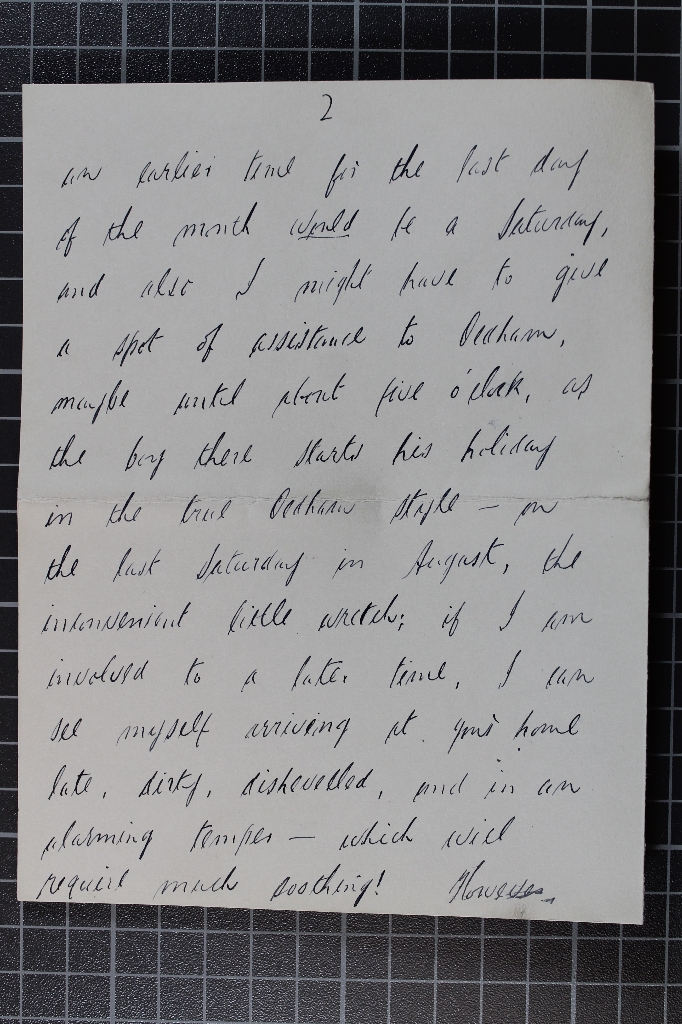 2
an earlier time for the last day
of the month would be a Saturday,
and also I might have to give
a spot of assistance to Dedham,
maybe until about five o'clock, as
the boy there starts his holiday
in the true Dedham style — on
the last Saturday in August, the
inconvenient little wretch; if I am
involved to a later time, I can
see myself arriving at your home
late, dirty, dishevelled, and in an
alarming temper — which will
require much soothing! However,